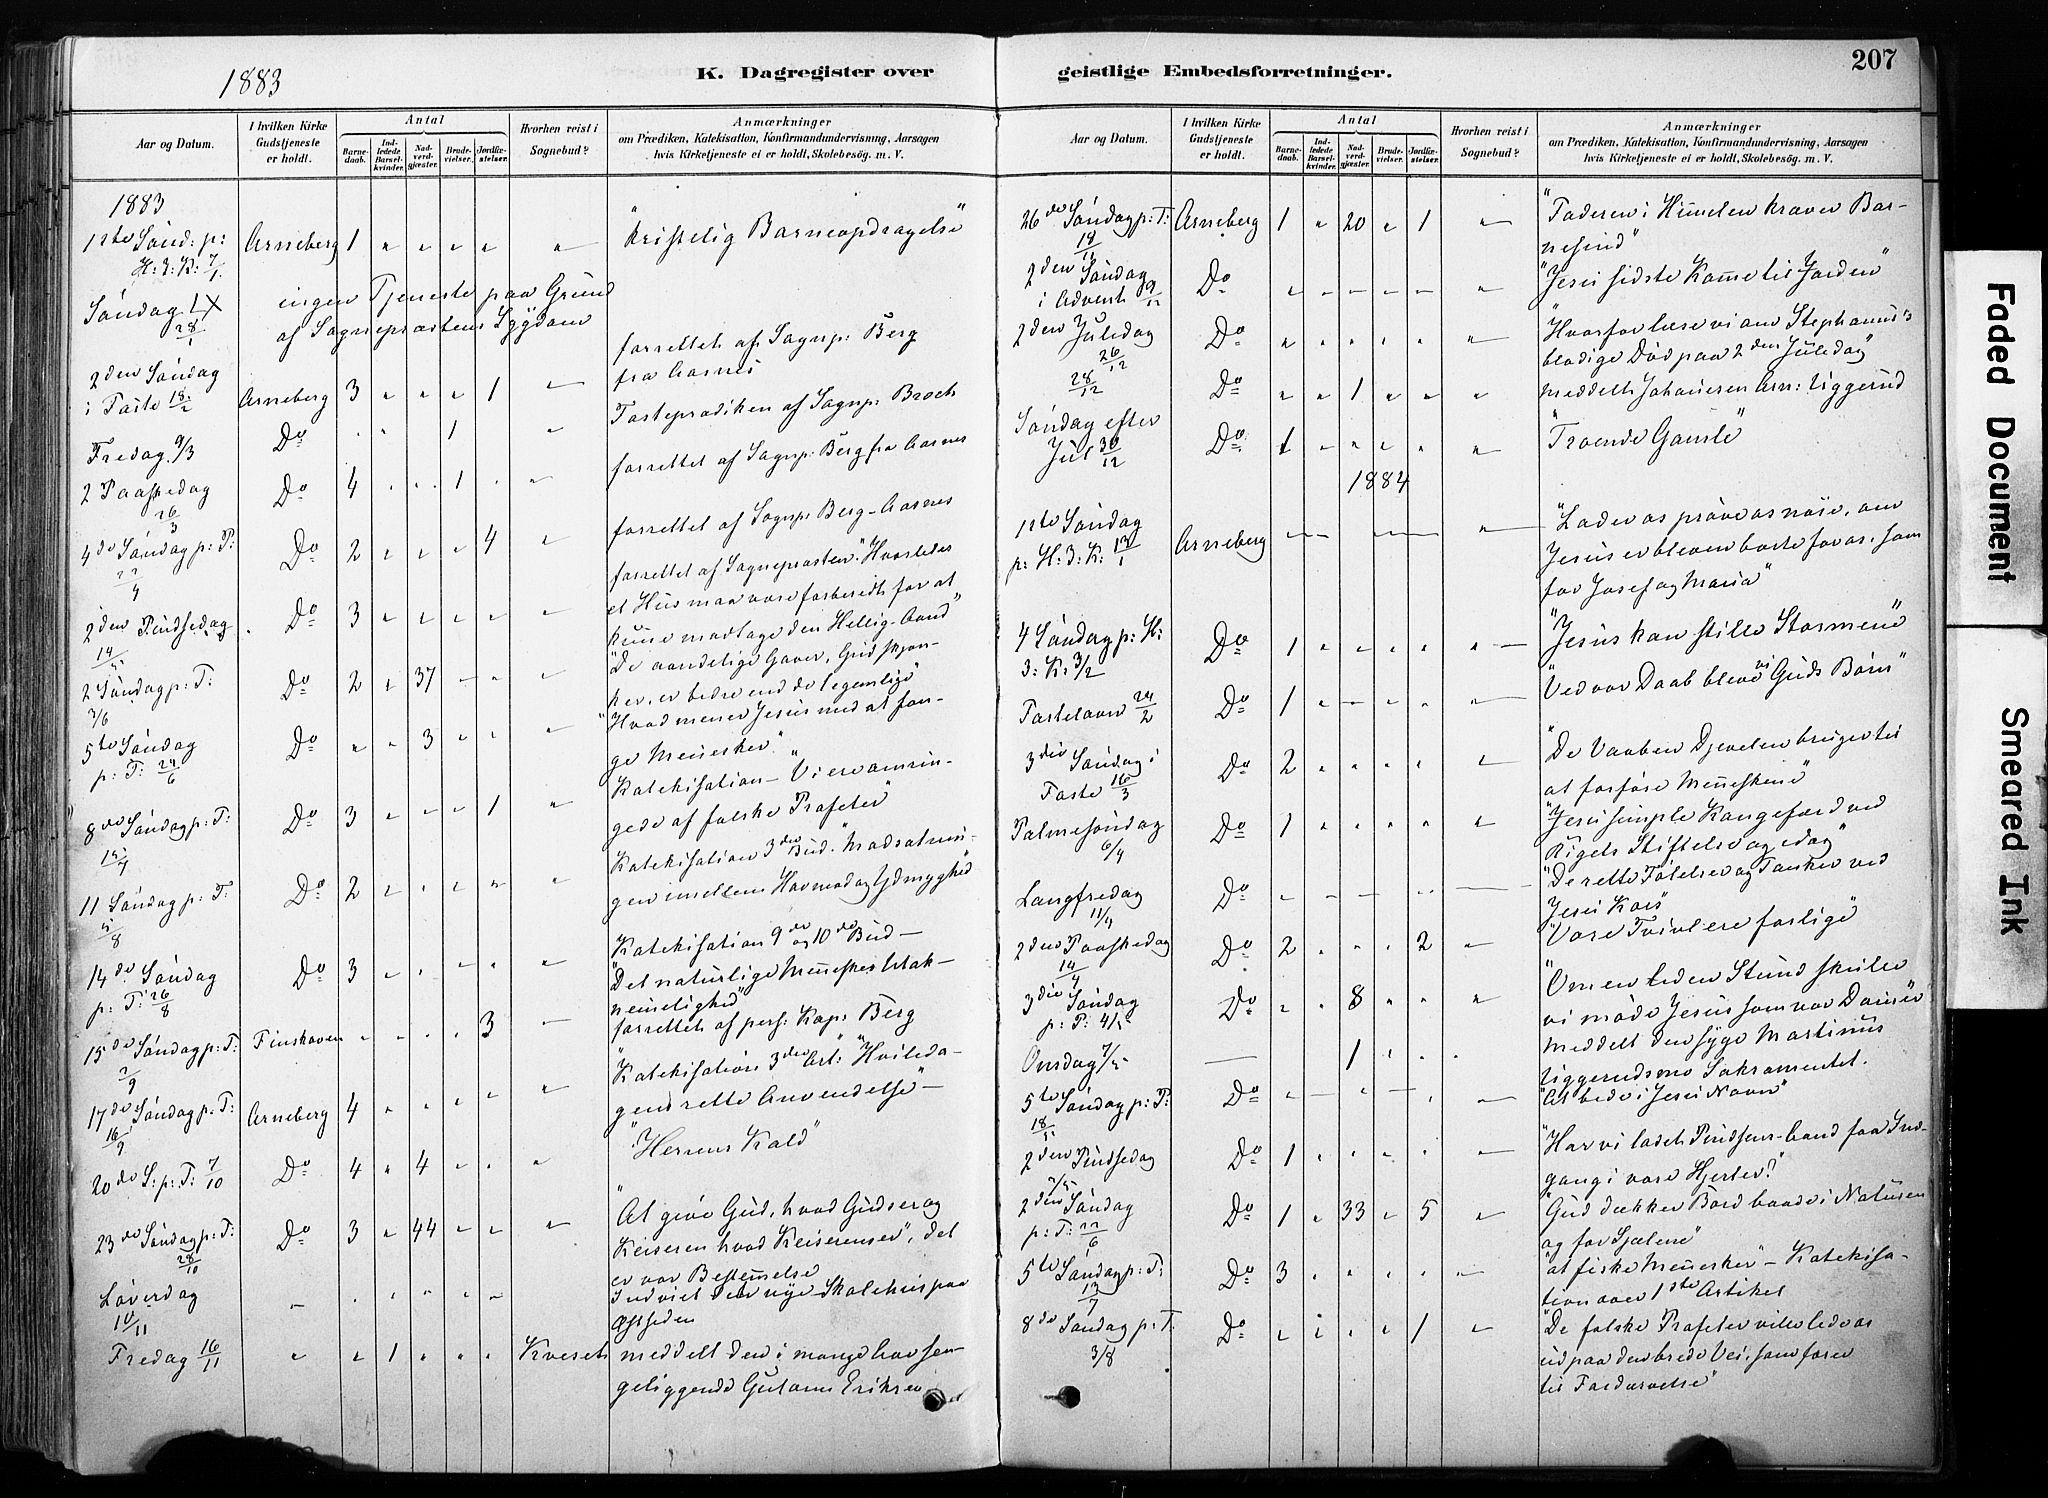 207
1883
K. Dagregister over
geistlige Embedsforretninger.
Aar og Datum.
I hvilken Kirke Gudstjeneste er holdt.
Antal
Barnedaab.
Indledede Barselkvinder.
Nadverdgjæster.
Brudevielser.
Jordfæstelser.
Hvorhen reist i Sognebud?
Anmærkninger
om Prædiken, Katekisation, Konfirmandundervisning, Aarsagen
hvis Kirketjeneste ei er holdt, Skolebesög. m. V.
1883
1ste Sønd: p: H: 3: K: 7/1 Arneberg 1 " " " " " "Kristelig Barneopdragelse"
Søndag 28/1 ingen Tjeneste paa Grund
af Sognepræstens Sygdom
2den Søndag i Faste 18/2 Arneberg 3 " " " 1 " forrettet af Sognp: Berg
fra Aasnes
Fredag 9/3 Do 1 " Fasteprædiken af Sognp: Broch
2 Paaskedag 26/3 Do 4 " " 1 " " forrettet af Sognp: Berg fra Aasnes
4de Søndag p: P: 22/4 Do 2 " " " 4 " forrettet af Sognp: Berg - Aasnes
2den Pindsedag 14/5 Do 3 " " " " " forrettet af Sognepræsten "Hvorledes
et Hus maa være forberedt for at
kune modtage den Hellig-Aand"
2 Søndag p: T: 3/6 Do 2 " 37 " " " "De aandelige Gaver, Gud skjæn-
ker, er bedre end de legemlige"
5te Søndag p: T: 24/6 Do " " 3 " " " "Hvad mener Jesus med at fan-
ge Mennesker."
8de Søndag p: T: 15/7 Do 3 " " " 1 " Katekisation - "Vi ere omrin-
gede af falske Profeter"
11 Søndag p: T: 5/8 Do 2 " " " " " Katekisation 3die Bud. "Modsætnin-
gen imellem Hovmod og Ydmyghed
14de Søndag p: T: 26/8 Do 3 " " " " " Katekisation 9de og 10de Bud -
"Det naturlige Menneskes Utak-
nemelighed"
15de Søndag p: T: 2/9 Finskoven " " " " 3 " forrettet af pers: Kap: Berg
17de Søndag p: T: 16/9 Arneberg 4 " " " " " "Katekisation 3die Art: "Hvileda-
gens rette Anvendelse" -
20de S: p: T: 7/10 Do 4 " 4 " " " "Herrens Kald"
23de Søndag p: T: 28/10 Do 3 " 44 " " " "At give Gud, hvad Guds er og
Keiseren hvad Keiserens er", det
er vor Bestemelse
Løverdag 10/11 " " " " " " Indviet den nye Skolehus paa
Østsiden
Fredag 16/11 " " 1 " " " Kveset meddelt den i mange Aar sen-
geliggende Gulown Eriksen
Aar og Datum.
I hvilken Kirke Gudstjeneste er holdt.
Antal
Barnedaab.
Indledede Barselkvinder.
Nadverdgjæster.
Brudevielser.
Jordfæstelser.
Hvorhen reist i Sognebud?
Anmærkninger
om Prædiken, Katekisation, Konfirmandundervisning, Aarsagen
hvis Kirketjeneste ei er holdt, Skolebesög. m. V.
26de Søndag p: T: 18/11 Arneberg 1 " 20 " 1 " "Faderen i Himelen kræver Bar-
nesind"
2den Søndag i Advent 9/12 Do " " " " " " "Jesu sidste Kome til Jorden"
2den Juledag 26/12 Do " " " " " " "Hvorfor læse vi om Stephanus's
blodige Død paa 2den Juledag"
28/12 Do " " 1 " " " meddelt Johannes Arn: Liggerud
Søndag efter Jul 30/12 Do 1 " " " " " "Troende Gamle"
1884
1ste Søndag p: H: 3: K: 13/1 Arneberg " " " " " "Lader os prøve os nøie, om
Jesus er bleven borte for os, som
for Josef og Maria"
4 Søndag p: H: 3: K: 3/2 Do 1 " " " " " "Jesus kan stille Stormene"
Fastelavn 24/2 Do 1 " " " " " "Ved vor Daab bleve vi Guds Børn"
3die Søndag i Faste 16/3 Do 2 " " " " " "De Vaaben Djevelen bruger til
at forføre Menneskene"
Palmesøndag 6/4 Do 1 " " " " " "Jesu simple Kongefærd ved
Rigets Stiftelse og idag"
Langfredag 11/4 Do " " " " " " "De rette Følelser og Tanker ved
Jesu Kors"
2den Paaskedag 14/4 Do 2 " " " 2 " "Vore Tvivl ere farlige"
3die Søndag p: P: 4/5 Do " " 8 " " " "Om en liden Stund skulle
vi møde Jesus som vor Domer
Onsdag 7/5 1 " " Meddelt den syge Martinus
Liggerudsmo Sakramentet.
5te Søndag p: P: 18/5 Do " " " " " " "At bede i Jesu Navn"
2den Pindsedag 2/6 Do 1 " " " " " "Har vi ladet Pindsens-Aand faa Ind-
gang i vore Hjerter?"
2den Søndag p: T: 22/6 Do 1 " 33 " 5 " "Gud dækker Bord baade i Naturen
og for Sjælene"
5te Søndag p: T: 13/7 Do 3 " " " " " "at fiske Mennesker" - Katekisa-
tion over 1ste Artikel
8de Søndag p: T: 3/8 Do " " " " 1 " "De falske Profeter ville lede os
ud paa den brede Vei, som fører
til Fordærvelse"
Faded Document
Smeared Ink